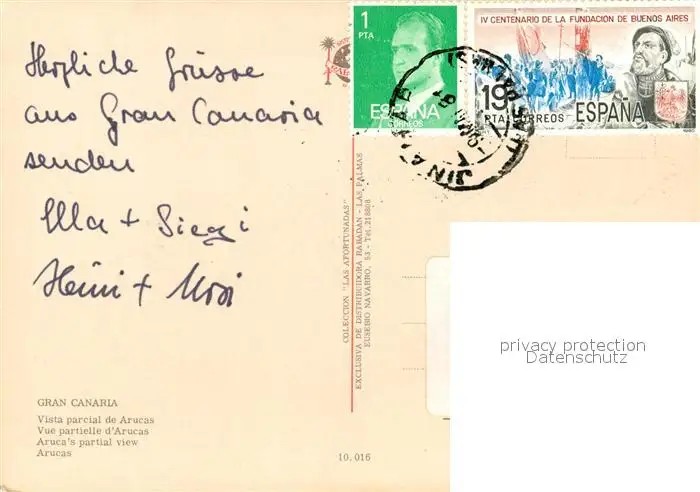 Herzliche Grüsse
aus Gran Canaria
senden
Ella + Siegi
Heini + Uroi
GRAN CANARIA
Vista parcial de Arucas
Vue partielle d'Arucas
Aruca's partial view
Arucas
10.016
COLECCION "LAS AFORTUNADAS"
EXCLUSIVA DE DISTRIBUIDORA RABADAN - LAS PALMAS
EUSEBIO NAVARRO, 53 - Tel. 218808
1
PTA
ESPAÑA
CORREOS
IV CENTENARIO DE LA FUNDACION DE BUENOS AIRES
19
PTA CORREOS ESPAÑA
privacy protection
Datenschutz